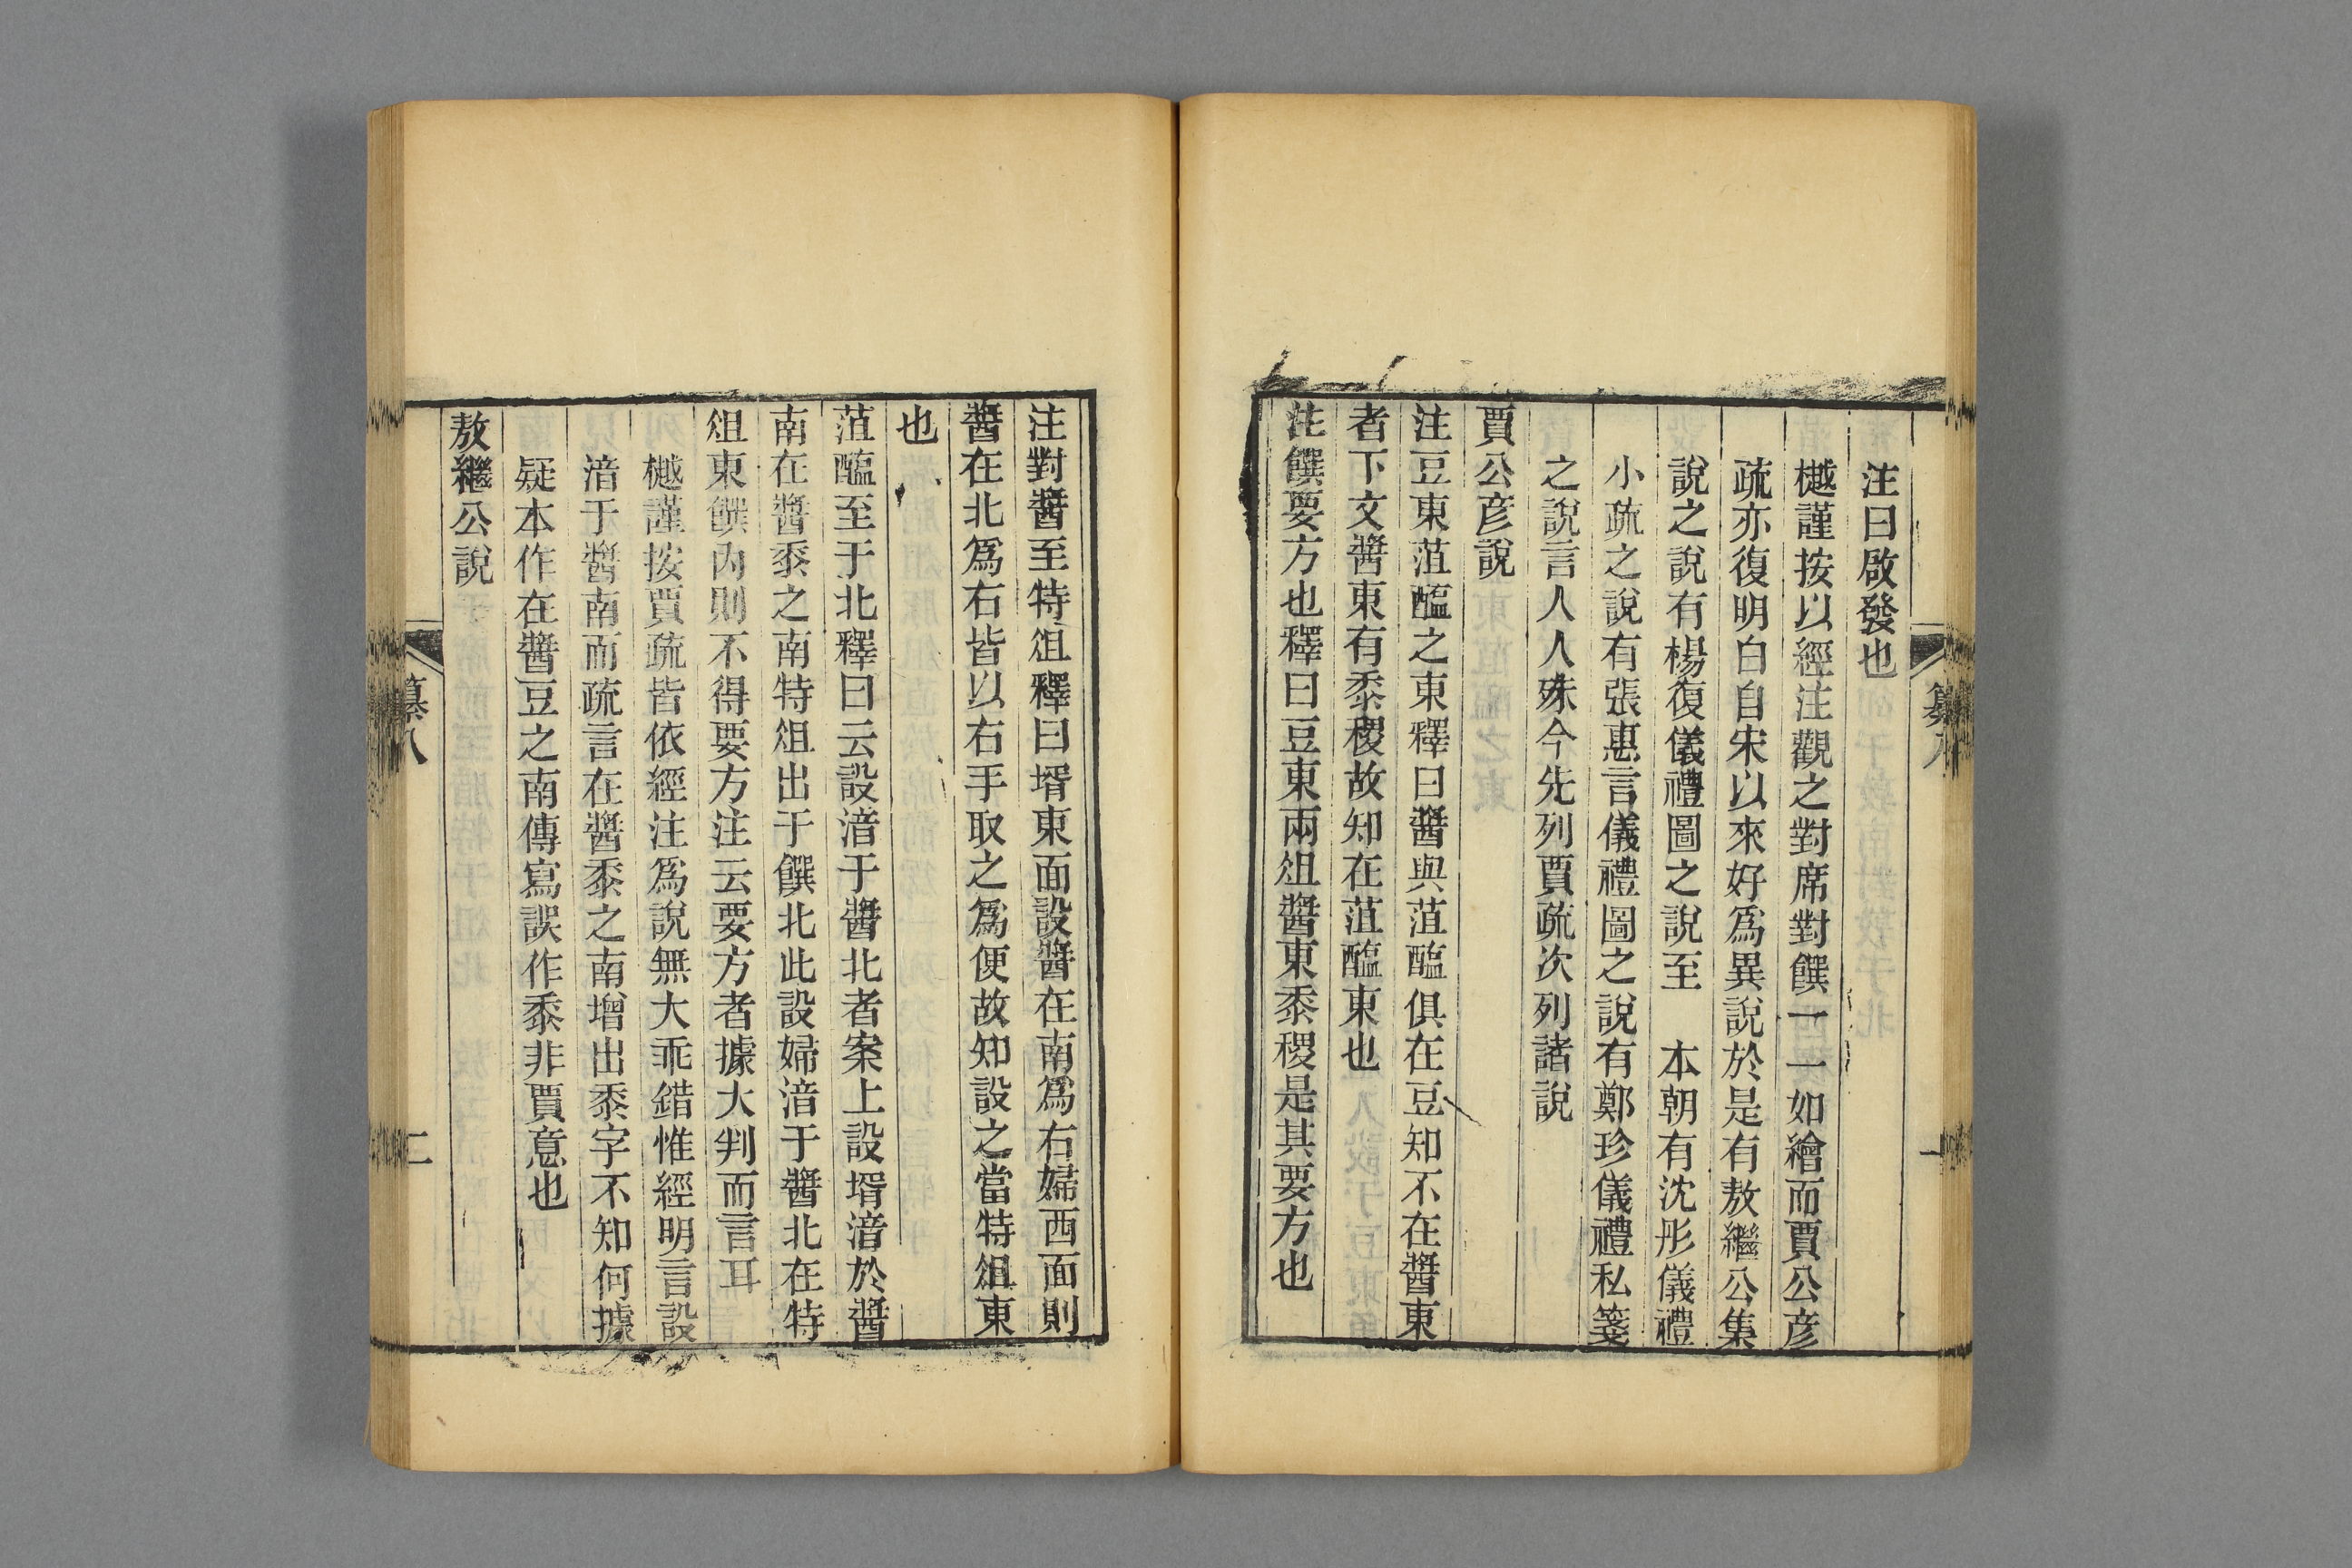 注曰啟發也
樾謹按以經注觀之對席對饌一一如繪而賈公彦
疏亦復明白自宋以來好為異說於是有敖繼公集
說之說有楊復儀禮圖之說至　本朝有沈彤儀禮
小疏之說有張惠言儀禮圖之說有鄭珍儀禮私箋
之說言人人殊今先列賈疏次列諸說
賈公彦說
注豆東菹醢之東釋曰醬與菹醢俱在豆知不在醬東
者下文醬東有黍稷故知在菹醢東也
注饌要方也釋曰豆東兩俎醬東黍稷是其要方也
注對醬至特俎釋曰壻東面設醬在南為右婦西面則
醬在北為右皆以右手取之為便故知設之當特俎東
也
菹醢至于北釋曰云設湆于醬北者案上設壻湆於醬
南在醬黍之南特俎出于饌北此設婦湆于醬北在特
俎東饌內則不得要方注云要方者據大判而言耳
樾謹按賈疏皆依經注為說無大乖錯惟經明言設
湆于醬南而疏言在醬黍之南增出黍字不知何據
疑本作在醬豆之南傳寫誤作黍非賈意也
敖繼公說
纂八
二